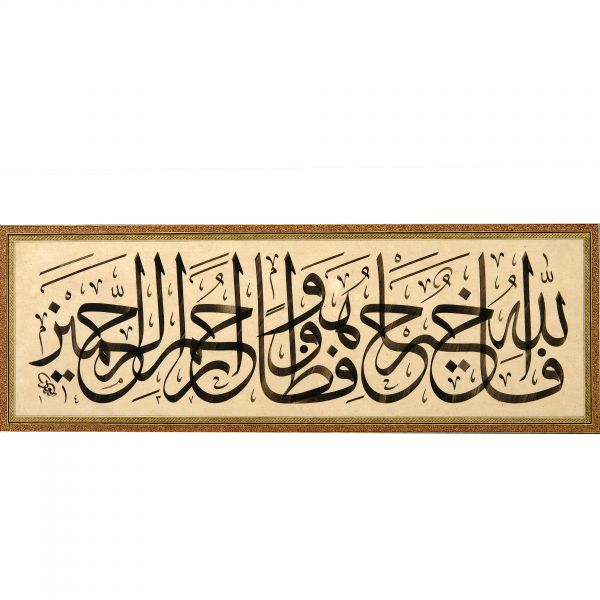 فالله خيرٌ حافظاً وهو ارحم الرّاحمين